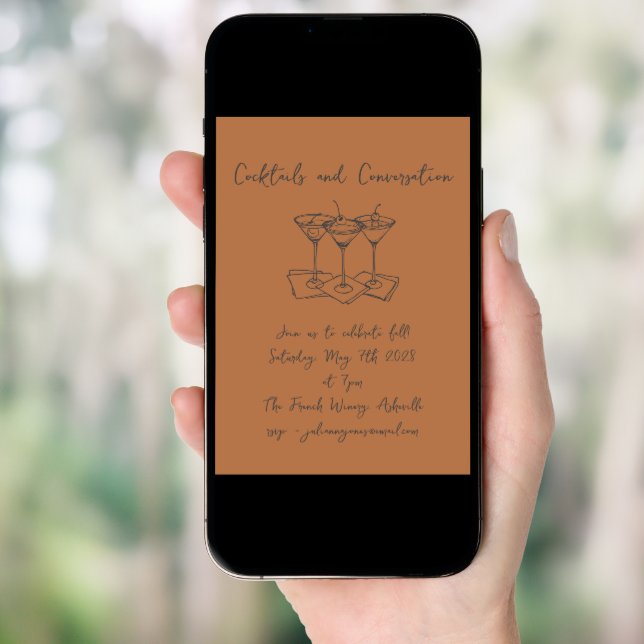 Cocktails and Conversation
Join us to celebrate fall!
Saturday, May 7th 2028
at 7pm
The French Winery, Asheville
rsvp - juliannajones@email.com